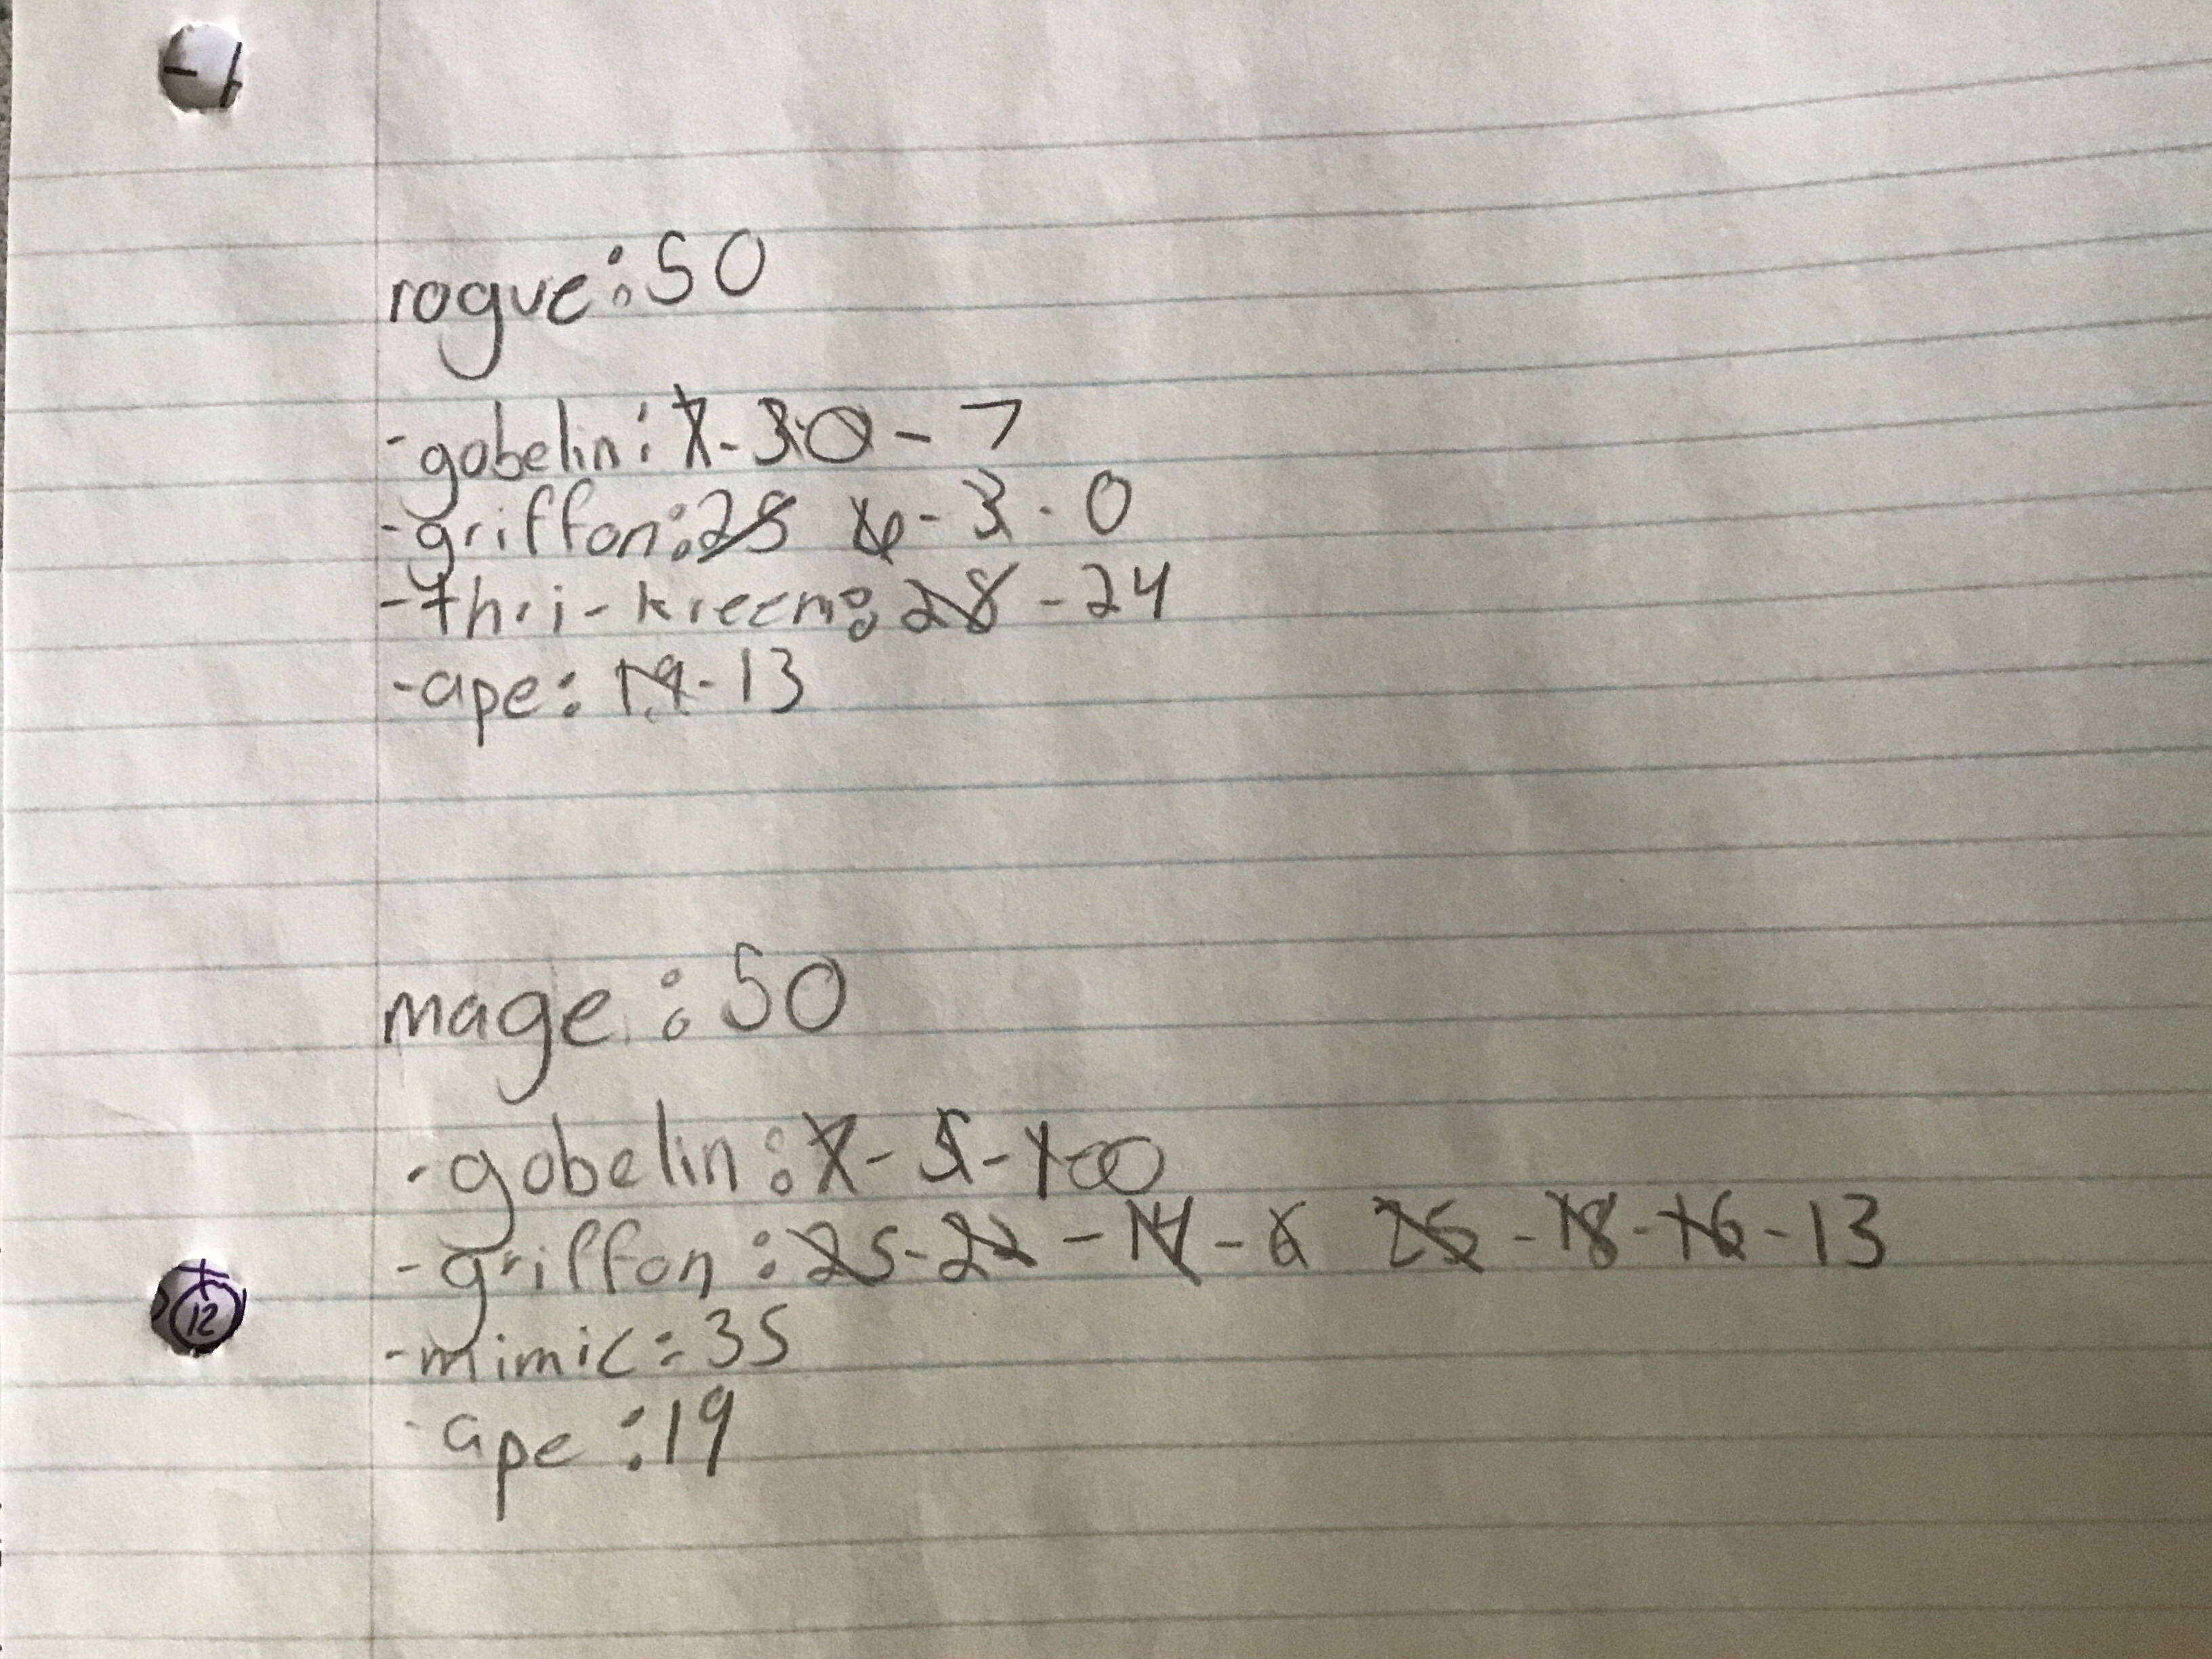 rogue: 50
-gobelin: 7-30-7
-griffon: 25 16-3-0
-thri-kreen: 28-24
-ape: 19-13
mage: 50
-gobelin: 7-5-1-00
-griffon: 25-22-14-6 25-18-16-13
12
-mimic: 35
-ape: 19